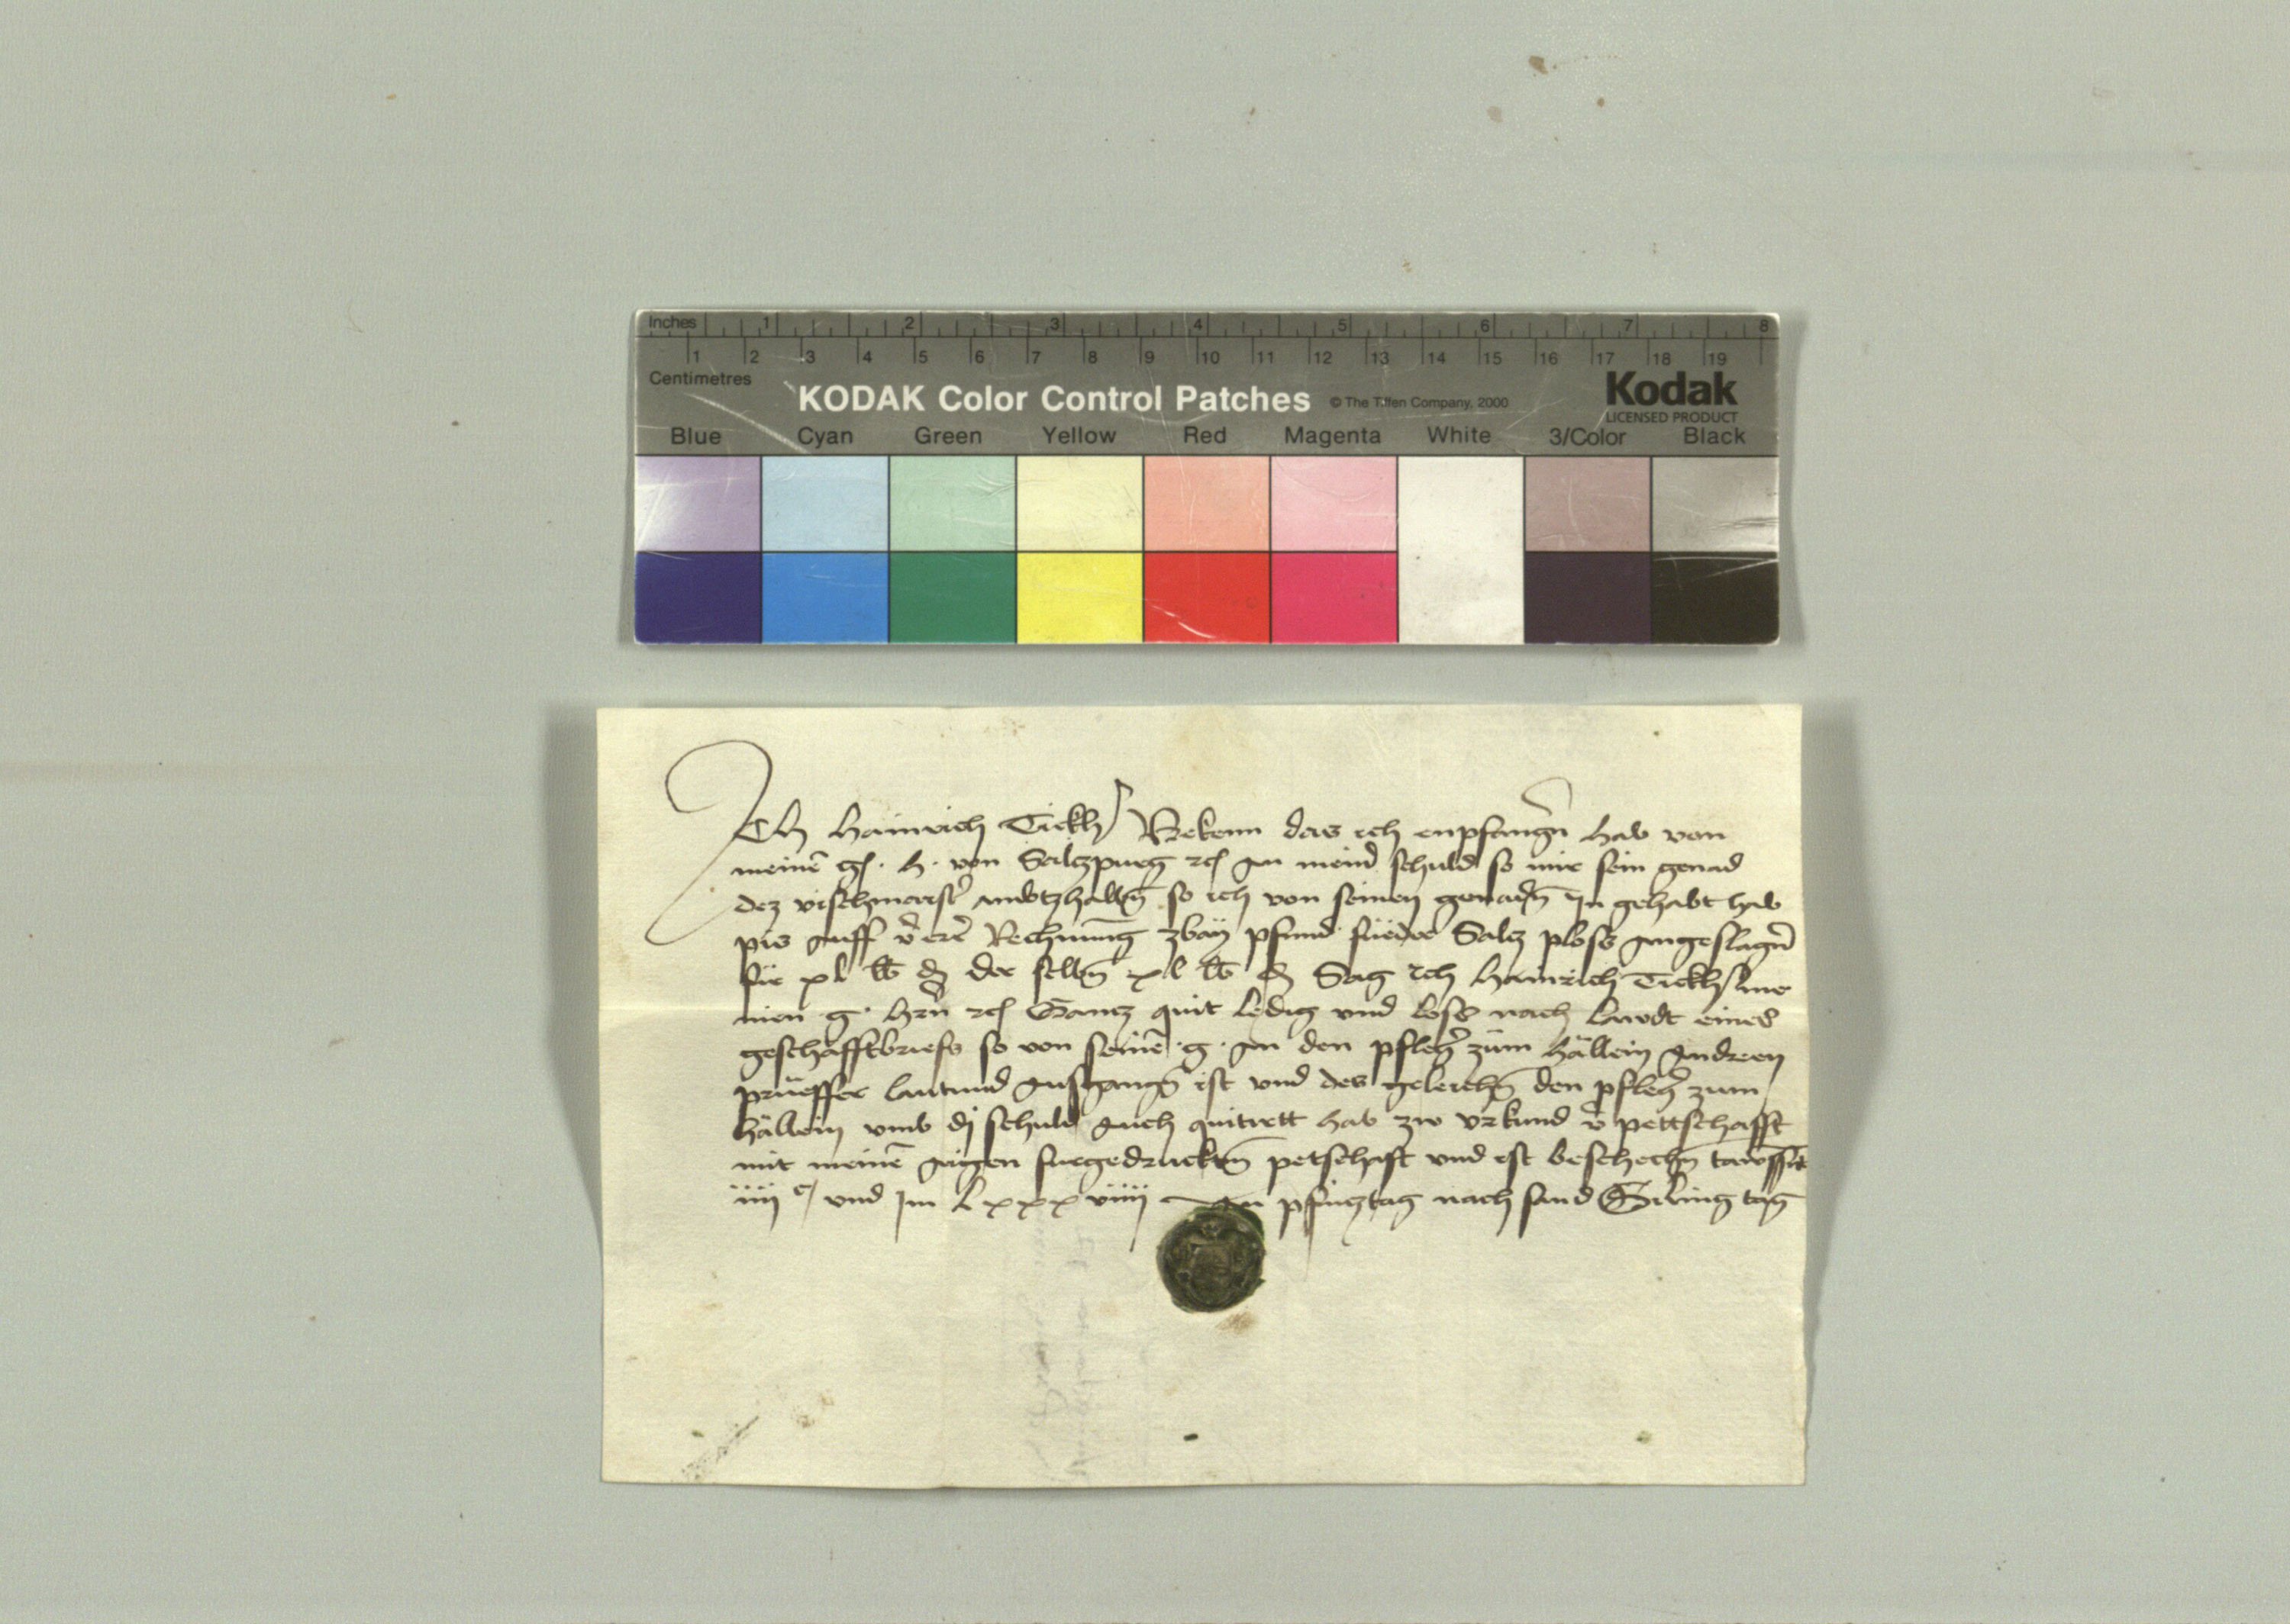 Inches 1 2 3 4 5 6 7 8
1 2 3 4 5 6 7 8 9 10 11 12 13 14 15 16 17 18 19
Centimetres
KODAK Color Control Patches © The Tiffen Company, 2000 Kodak
LICENSED PRODUCT
Blue Cyan Green Yellow Red Magenta White 3/Color Black
Ich Hainrich Tickhl Bekenn das ich enpfangn̄ hab von
meinē g. h. von Salczpurg an meind schuld so mir sein genad
dez vischmaist ambtzhalbn̄ so ich von seinen genadn̄ In gehabt hab
pis auff Rechnūng zbaÿ pfund füeder Salcz ploss angeslagn̄
für xl der selbn̄ xl Sag ich Hainrich Tickhl
meinen g. hrn̄ Gantz quit ledig vnd loss nach lawdt eines
geschäfftbriefs so von seinē g. an den pfleg zum Hällein Andreen
prüeffer lautund ausgangn̄ ist vnd des geleichn̄ den pfleg zum
Hällein vmb dj schuld auch quitirtt hab zw vrkund pettschafft
mit meinē aigen furgedrucktn̄ petschaft vnd ist beschechn̄
iiij c vnd Im lxxxviiij An pfincztag nach sand Giling tag